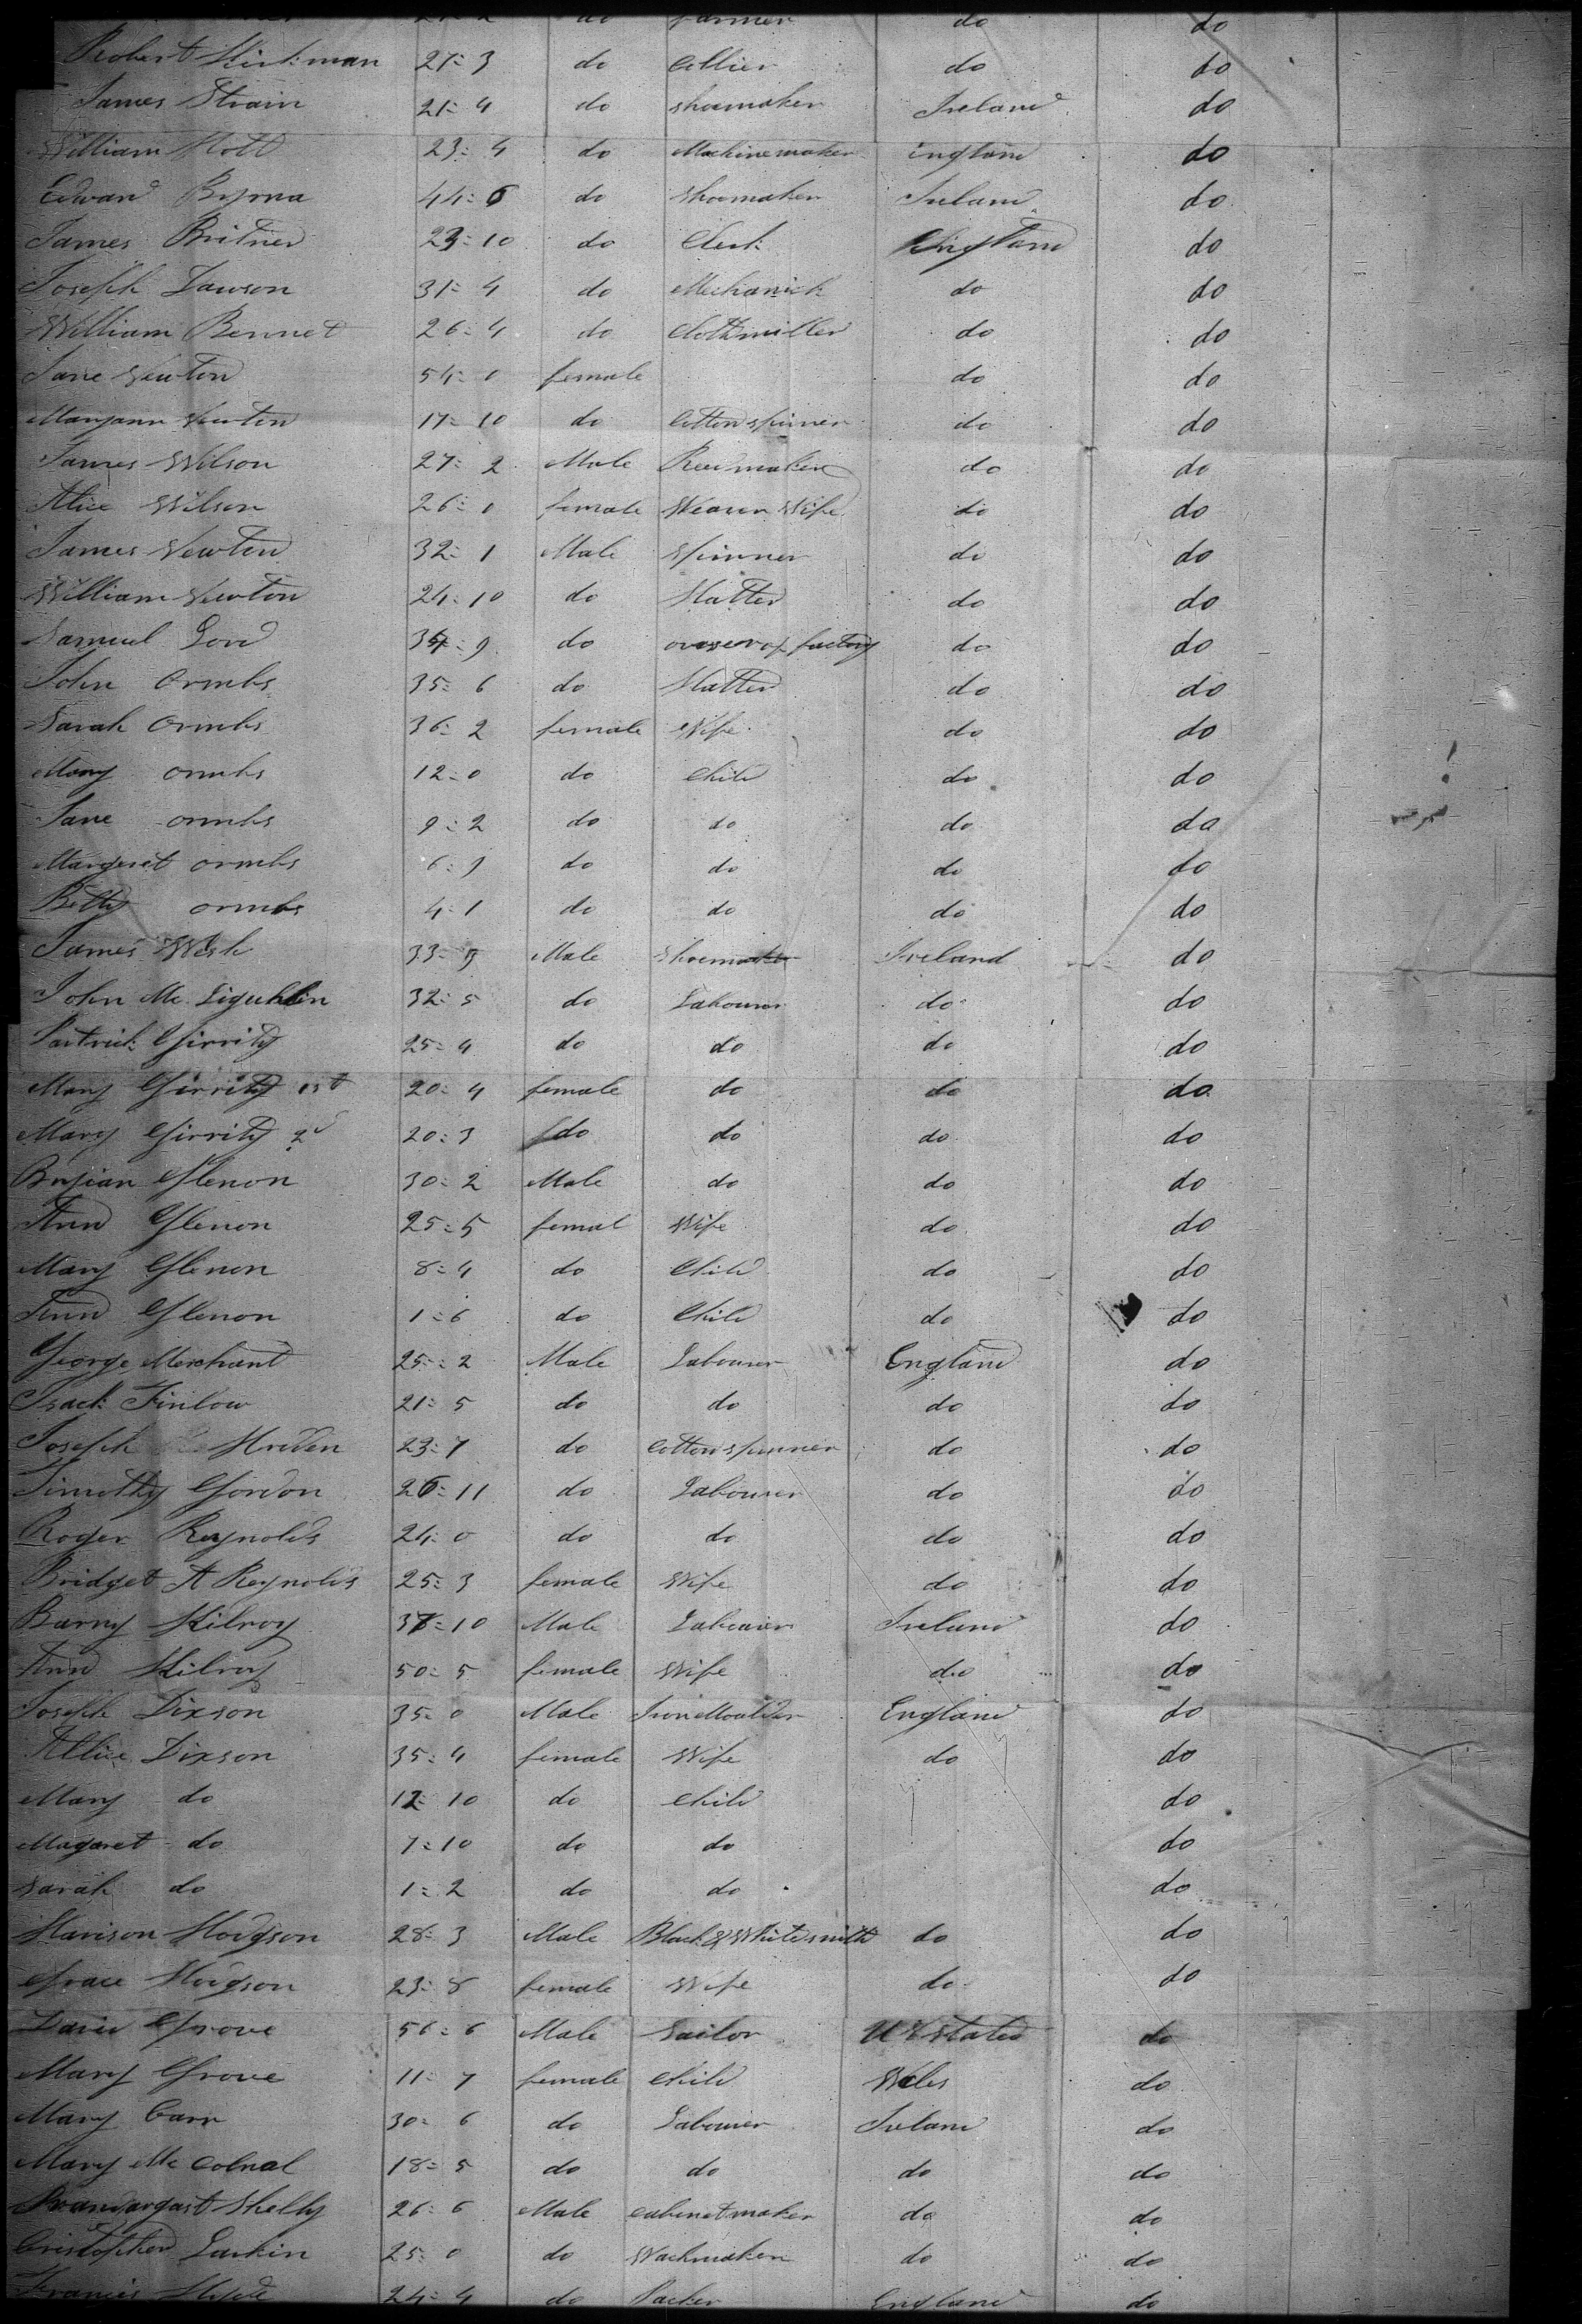 do farmer do do
Robert Kirkman 27=3 do Collier do do
James Strain 21=4 do shoemaker Ireland do
William Holt 23=4 do Machinemaker England do
Edward Byrna 44=6 do shoemaker Ireland do
James Britner 23=10 do Clerk England do
Joseph Dawson 31=4 do Mechanick do do
William Bennet 26=4 do Clothmiller do do
Jane Newton 54=0 female do do
Maryann Newton 17=10 do Cotton spinner do do
James Wilson 27=2 Male Reedmaker do do
Alice Wilson 26=0 female Weaver Wife do do
James Newton 32=1 Male Spinner do do
William Newton 24=10 do Hatter do do
Samuel Lord 9 do overseer of factory do do
John Ormbs 35=6 do Hatter do do
Sarah Ormbs 36=2 female Wife do do
Mary Ormbs 12=0 do Child do do
Jane Ormbs 9=2 do do do do
Margeret Ormbs 6=9 do do do do
Betty Ormbs 4=1 do do do do
James 33=9 Male Shoemaker Ireland do
John Mc. 32=5 do Labourer do do
Partrick Girrity 25=4 do do do do
Mary Girrity 1st 20=4 female do do do
Mary Girrity 2d 20=3 do do do do
Bryian Glenon 30=2 Male do do do
Ann Glenon 25=5 femal Wife do do
Mary Glenon 8=4 do Child do do
Ann Glenon 1=6 do Child do do
George Merchant 25=2 Male Labourer England do
Isack Finlow 21=5 do do do do
Joseph Hriden 23=7 do Cotton spinner do do
Timothy Gordon 26=11 do Labourer do do
Roger Reynolds 24=0 do do do do
Bridget A Reynolds 25=3 female Wife do do
Barny Kilroy 10 Male Labourer Ireland do
Ann Kilroy 50=5 female Wife do do
Joseph Dixson 35=0 Male Iron Moulder England do
Allice Dixson 35=4 female Wife do do
Mary do 12=10 do Child do
Magaret do 7=10 do do do
Sarah do 1=2 do do do
Harison Hodgson 28=3 Male Black & White smith do do
Grace Hodgson 23=8 female Wife do do
David Grove 56=6 Male Sailor U States do
Mary Grove 11=7 female Child Wales do
Mary Carr 30=6 do Labourer Ireland do
Mary Mc Colnal 18=5 do do do do
Shelly 26=6 Male Cabinetmaker do do
Cristopher Larkin 25=0 do Wachmaker do do
Francis Hyde 24=4 do Packer England do